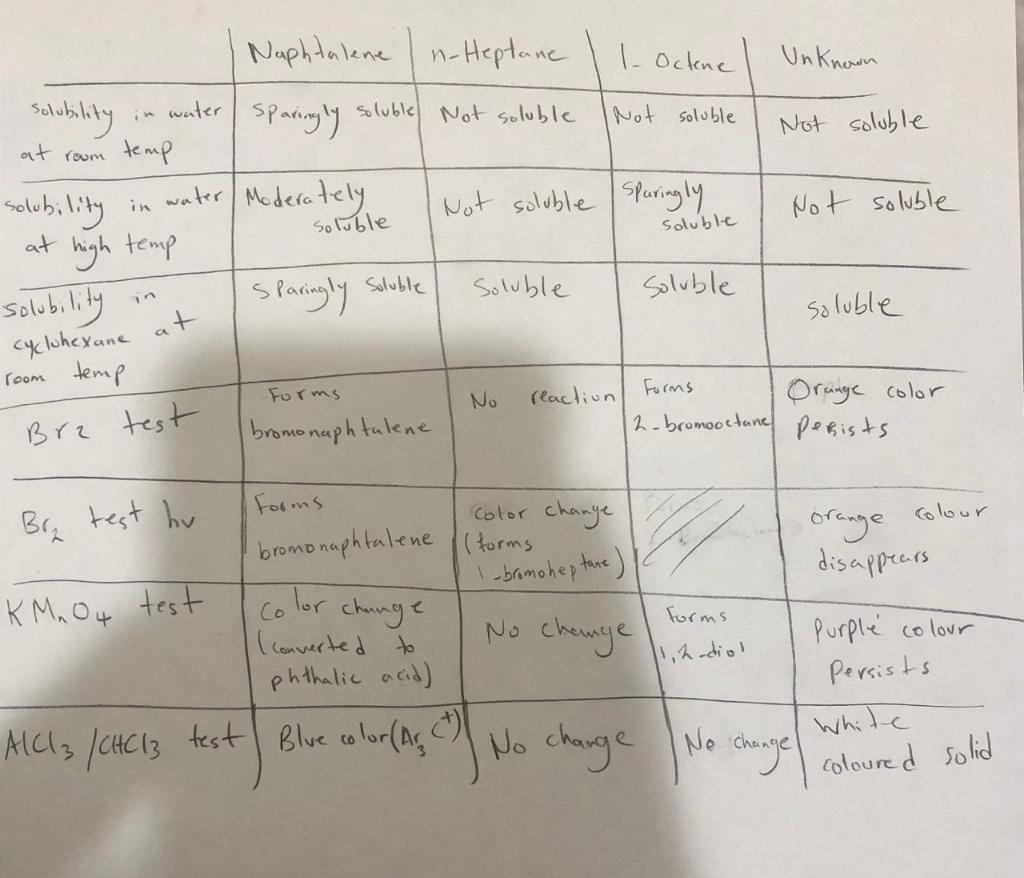 Naphtalene n-Heptane 1-Octene Unknown
Solubility in water
at room temp
Sparingly soluble
Not soluble
Not soluble
Not soluble
Solubility in water
at high temp
Moderately
soluble
Not soluble
Sparingly
soluble
Not soluble
Solubility in
cyclohexane at
room temp
Sparingly soluble
Soluble
Soluble
Soluble
Br2 test
Forms
bromonaphtalene
No reaction
Forms
2-bromooctane
Orange color
Persists
Br2 test hv
Forms
bromonaphtalene
Color change
(forms
1-bromoheptane)
orange colour
disappears
KMnO4 test
Color change
(converted to
phthalic acid)
No change
Forms
1,2-diol
Purple colour
Persists
AlCl3/CHCl3 test
Blue color (Ar3C+)
No change
No change
White
coloured solid